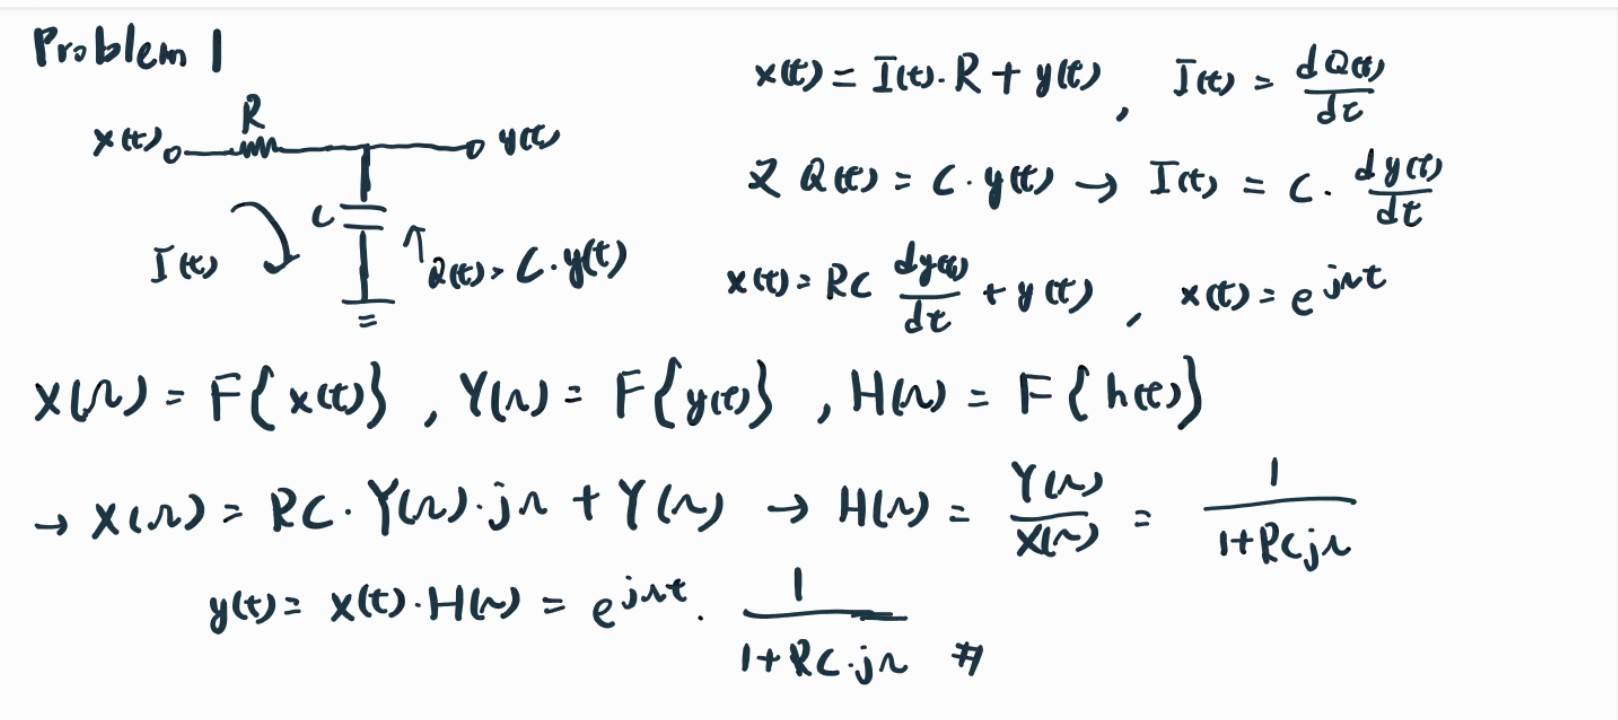 Problem 1
x(t) = I(t)·R + y(t) , I(t) = dQ(t)/dt
R
x(t) y(t)
& Q(t) = C·y(t) → I(t) = C · dy(t)/dt
C
I(t) ↑ Q(t) = C·y(t)
x(t) = RC dy(t)/dt + y(t) , x(t) = e^{jΩt}
X(Ω) = F{x(t)} , Y(Ω) = F{y(t)} , H(Ω) = F{h(t)}
→ X(Ω) = RC·Y(Ω)·jΩ + Y(Ω) → H(Ω) = Y(Ω)/X(Ω) = 1/(1+RCjΩ)
y(t) = x(t)·H(Ω) = e^{jΩt} · 1/(1+RC·jΩ) #